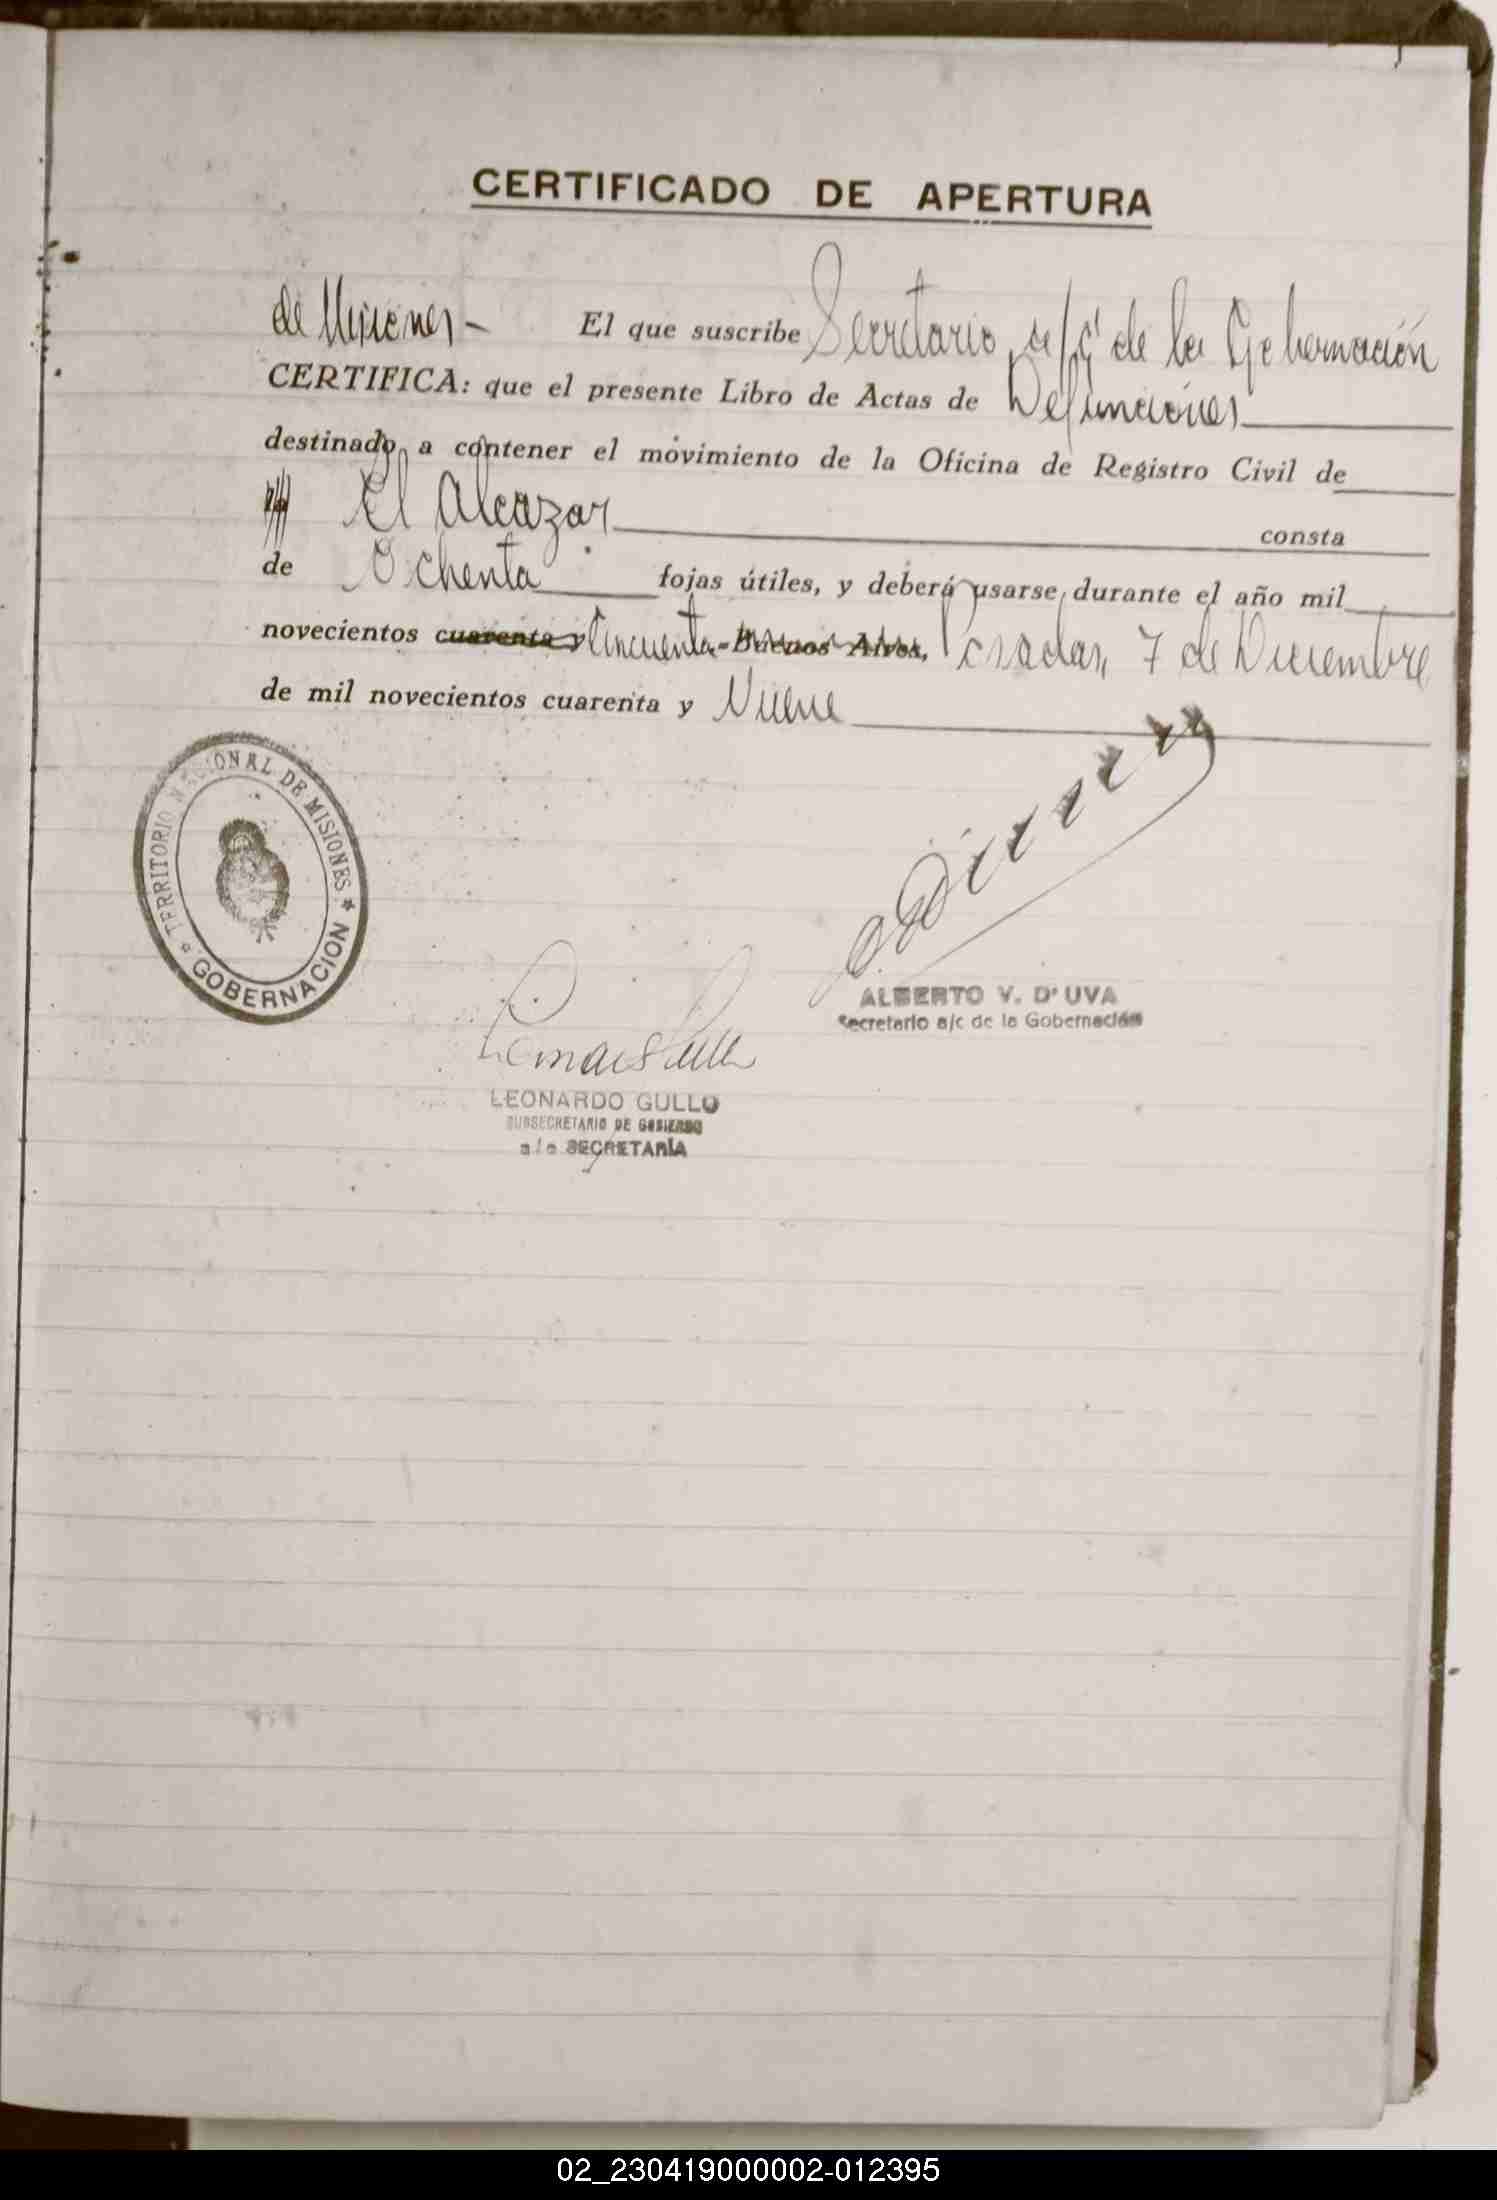 CERTIFICADO DE APERTURA
El que suscribe Secretario a/c de la Gobernación
de Misiones -
CERTIFICA: que el presente Libro de Actas de Defunciones
destinado a contener el movimiento de la Oficina de Registro Civil de
El Alcazar consta
de Ochenta fojas útiles, y deberá usarse durante el año mil
novecientos cuarenta y Cincuenta - Buenos Aires, Posadas, 7 de Diciembre
de mil novecientos cuarenta y Nueve
TERRITORIO NACIONAL DE MISIONES
GOBERNACION
ALBERTO V. D'UVA
Secretario a/c de la Gobernación
LEONARDO GULLO
SUBSECRETARIO DE GOBIERNO
a/c SECRETARÍA
02_230419000002-012395